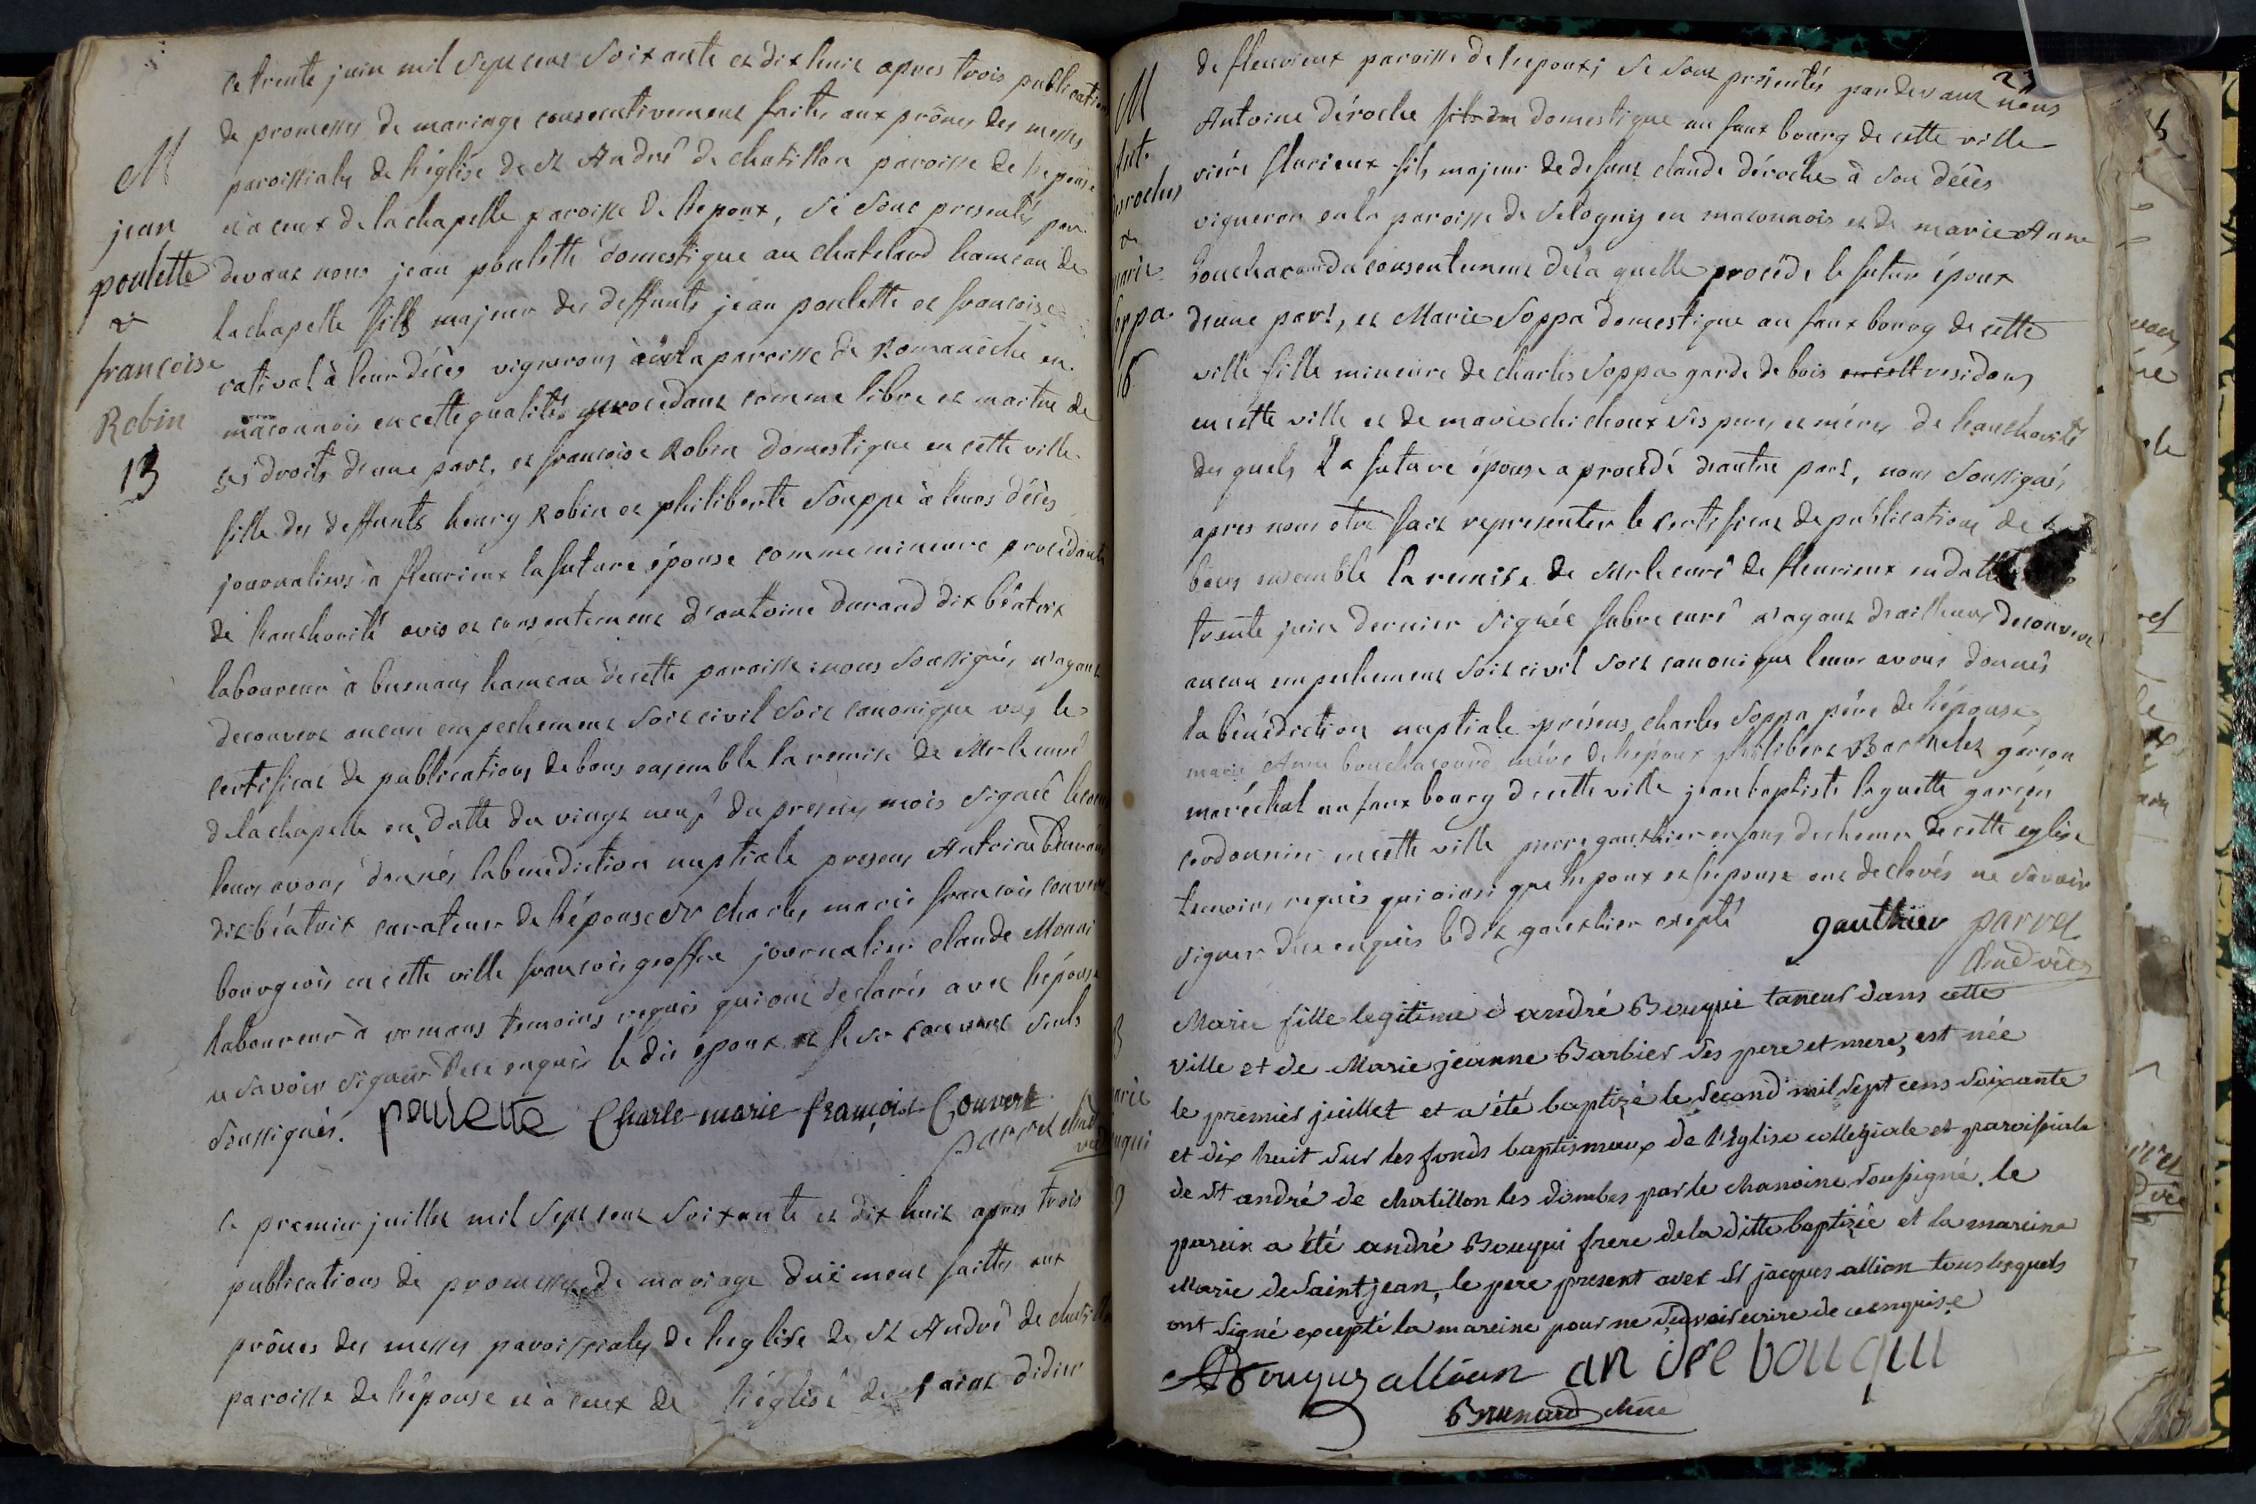 M
jean
poulette
&
francoise
Robin
13
Le trente juin mil sept cent soixante et dix huit apres trois publications
de promesses de mariage consecutivement faites aux prônes des messes
paroissiales de l'église de st André de chatillon paroisse de l'epouse
et a ceux de la chapelle paroisse de l'epoux, se sont presentés par
devant nous jean poulette domestique au chatelard hameau de
la chapelle fils majeur des deffunts jean poulette et francoise
cativat à leur décès vignerons à la paroisse de Romanèche en
maconnois en cette qualité procedant comme libre et maitre de
ses droits d'une part, et francoise Robin domestique en cette ville
fille des deffunts henry Robin et philiberte souppe à leurs décès
journaliers à fleurieux la future épouse comme mineure procédante
de l'authorité avis et consentement d'antoine durand dit béatrix
laboureur à buenans hameau de cette paroisse: nous soussignés n'ayant
decouvert aucun empechement soit civil soit canonique vus le
certificat de publications de bans ensemble la remise de Mr le curé
de la chapelle en datte du vingt neuf du present mois signée
leurs avons donnés la benediction nuptiale presens Antoine durand
dit béatrix curateur de l'épouse sr charles marie francois couvert
bourgeois en cette ville francois geoffre journalier claude Monni
laboureur à romans temoins requis qui ont declarés avec l'épouse
ne savoir signer de ce enquis le dit epoux et le sr couvert seuls
soussignés. poulette Charle-marie-françois-Couvert
parret
Le premier juillet mil sept cent soixante et dix huit après trois
publications de promesses de mariage duëment faittes aux
prônes des messes paroissiales de l'eglise de st André de chatillon
paroisse de l'épouse et à ceux de l'église de saint didier
M
Ant.
deroches
&
marie
soppa
16
de fleurieux paroisse de l'epoux; se sont présentés pardevant nous
Antoine déroche domestique au faux bourg de cette ville
fils majeur de defunt claude déroche à son décès
vigneron en la paroisse de Sologny en maconnois et de marie Anne
bouchacourd du consentement de la quelle procéde le futur époux
d'une part, et Marie Soppa domestique au faux bourg de cette
ville fille mineure de charles Soppa garde de bois residens
en cette ville et de marie chichoux ses pere et mére, de l'authorité
des quels la future épouse a procédé d'autre part, nous soussignés
apres nous etre fait representer le certificat de publications de
bans ensemble la remise de Mr le curé de fleurieux en datte
trente juin dernier signée fabre curé n'ayant d'ailleurs decouvert
aucun empechement soit civil soit canonique leurs avons donnés
la bénédiction nuptiale présens charles Soppa pére de l'épouse
marie Anne bouchacourd mére de l'époux philibert garçon
maréchal au faux bourg de cette ville jean baptiste laguette garçon
cordonnier en cette ville pierre gauthier enfant de choeur de cette eglise
temoins requis qui ainsi que l'epoux et l'epouse ont declarés ne savoir
signer de ce enquis le dit gauthier exepté gauthier parret
B
marie
bouqui
9
Marie fille legitime d'andré Bouqui taneur dans cette
ville et de Marie jeanne Barbier ses pere et mere, est née
le premier juillet et a été baptizé le second mil sept cens soixante
et dix huit sur les fonds baptismaux de l'Eglise collegiale et paroissiale
de St andré de chatillon les dombes par le chanoine soussigné. le
parein a été andré Bouqui frere de la ditte baptizée et la mareine
Marie de Saint jean, le pere present avec Sr jacques allion tous lesquels
ont signé excepté la mareine pour ne sçavoir ecrire de ce enquise
Bouquy allion andre bouqui
Brunard chne